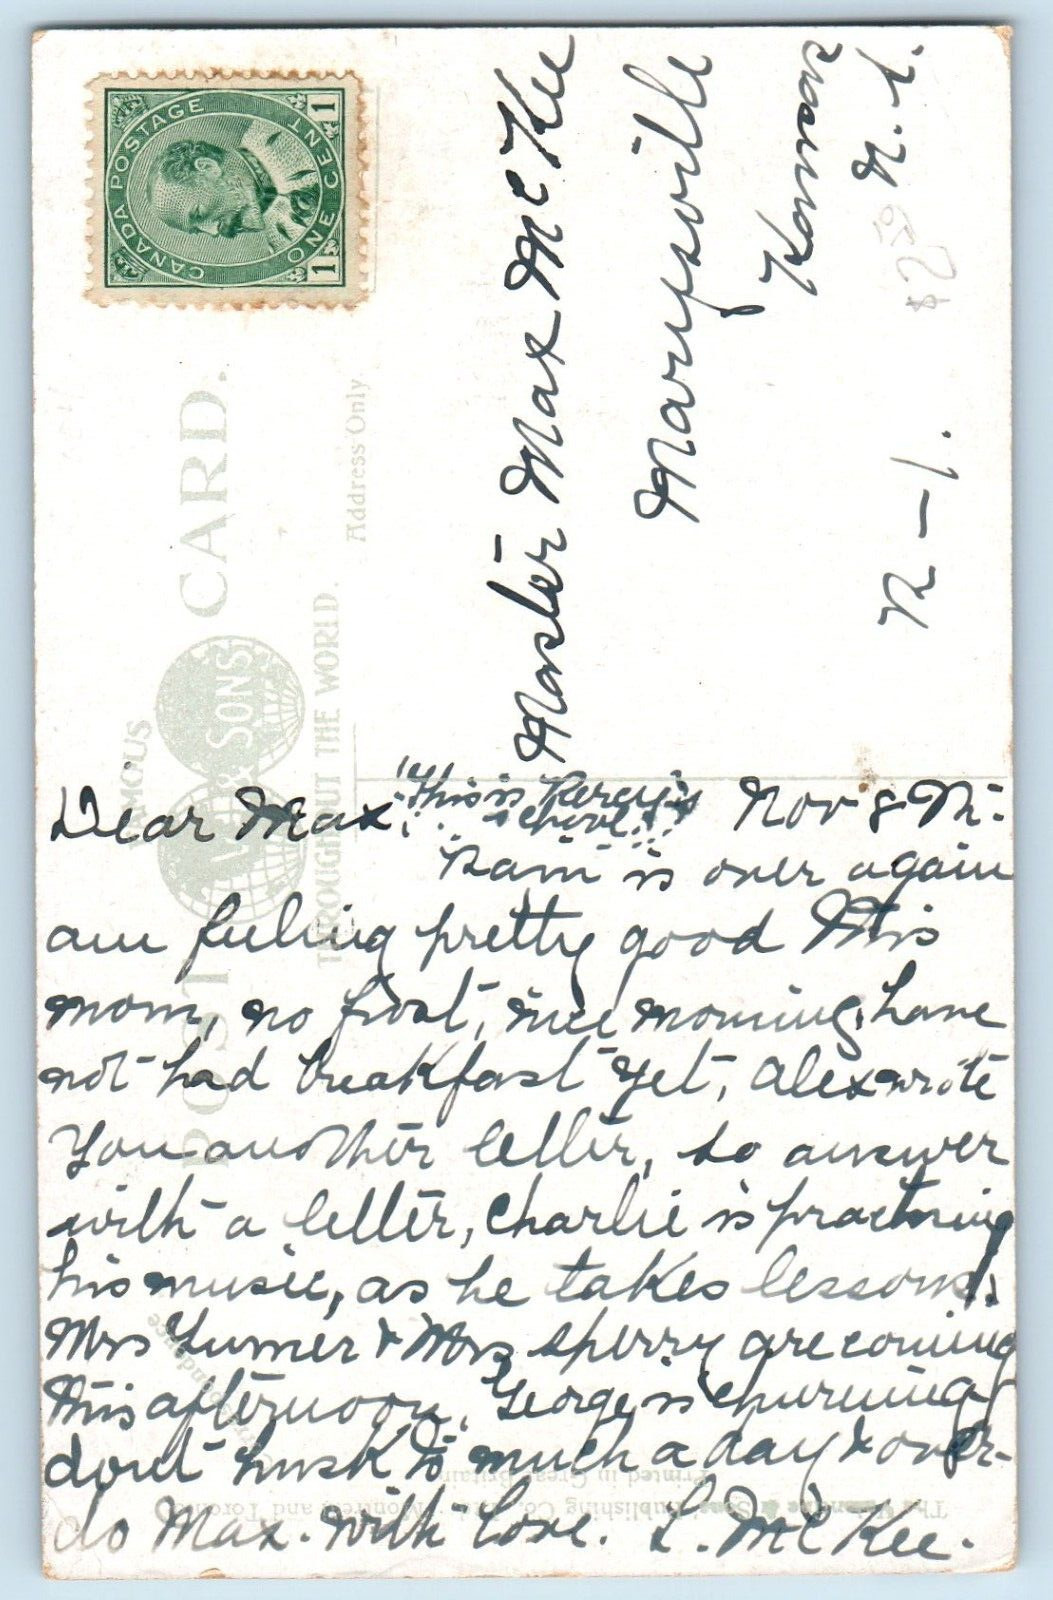 CANADA POSTAGE
ONE CENT
1 1
Master Max McKee
Marysville
Kansas
R-1.
POST CARD.
& SONS
THROUGHOUT THE WORLD.
Address Only
Dear Max, "This is
Nov 8 M.
"rain" is over again
am feeling pretty good this
morn, no frost, nice morning, have
not had breakfast yet, Alex wrote
you another letter, so answer
with a letter, Charlie is practicing
his music, as he takes lessons.
Mrs Turner & Mrs Sperry are coming
this afternoon, George is churning
dont husk to much a day & over-
do Max. with love. L. McKee.
Printed in Great Britain
Sons Publishing Co., Montreal and Toronto